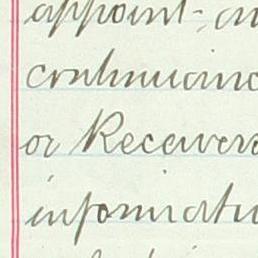 appoint
continuanc
or Receivers
informatio